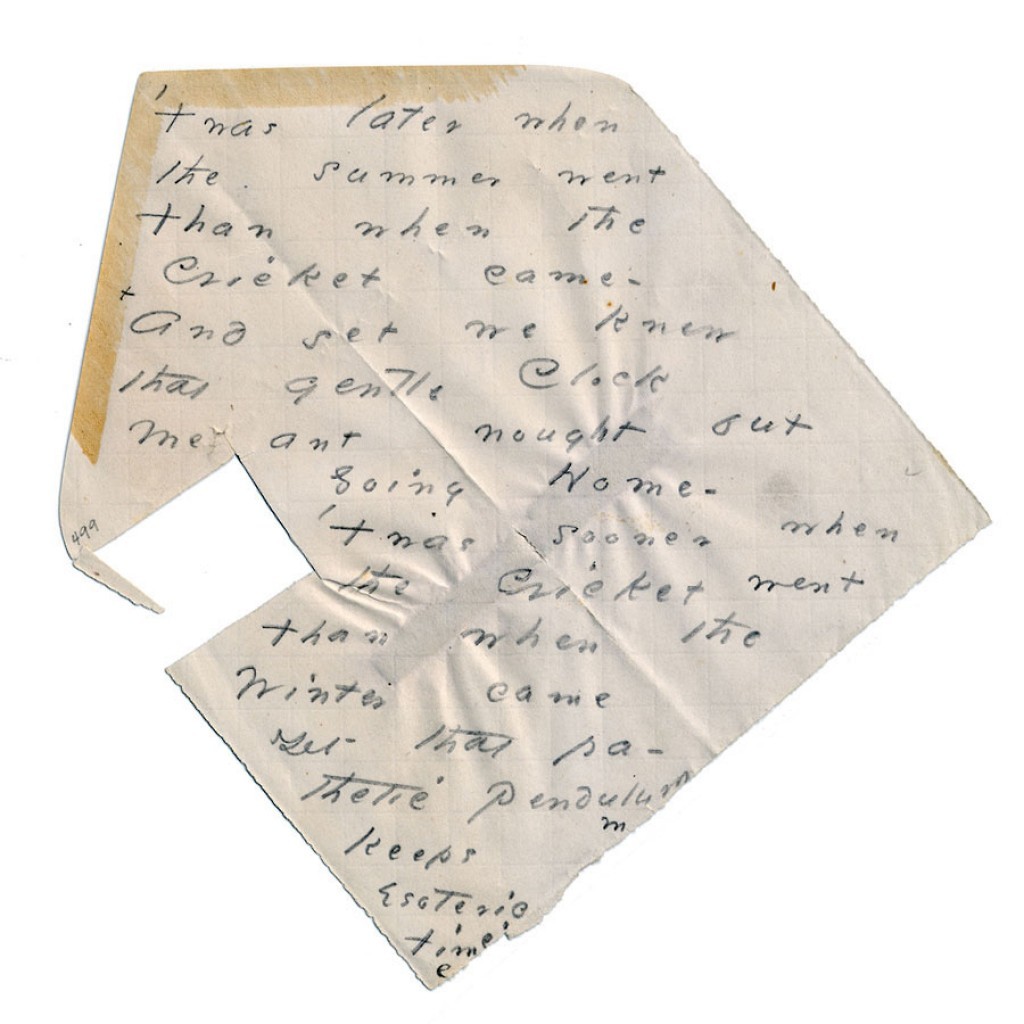 'Twas later when
the summer went
than when the
Cricket came-
+
And yet we knew
that gentle Clock
Me ant nought but
Going Home-
'Twas sooner when
the Cricket went
than when the
Winter came
Yet that pa-
thetic Pendulum
m
keeps
Esoteric
time
e
499